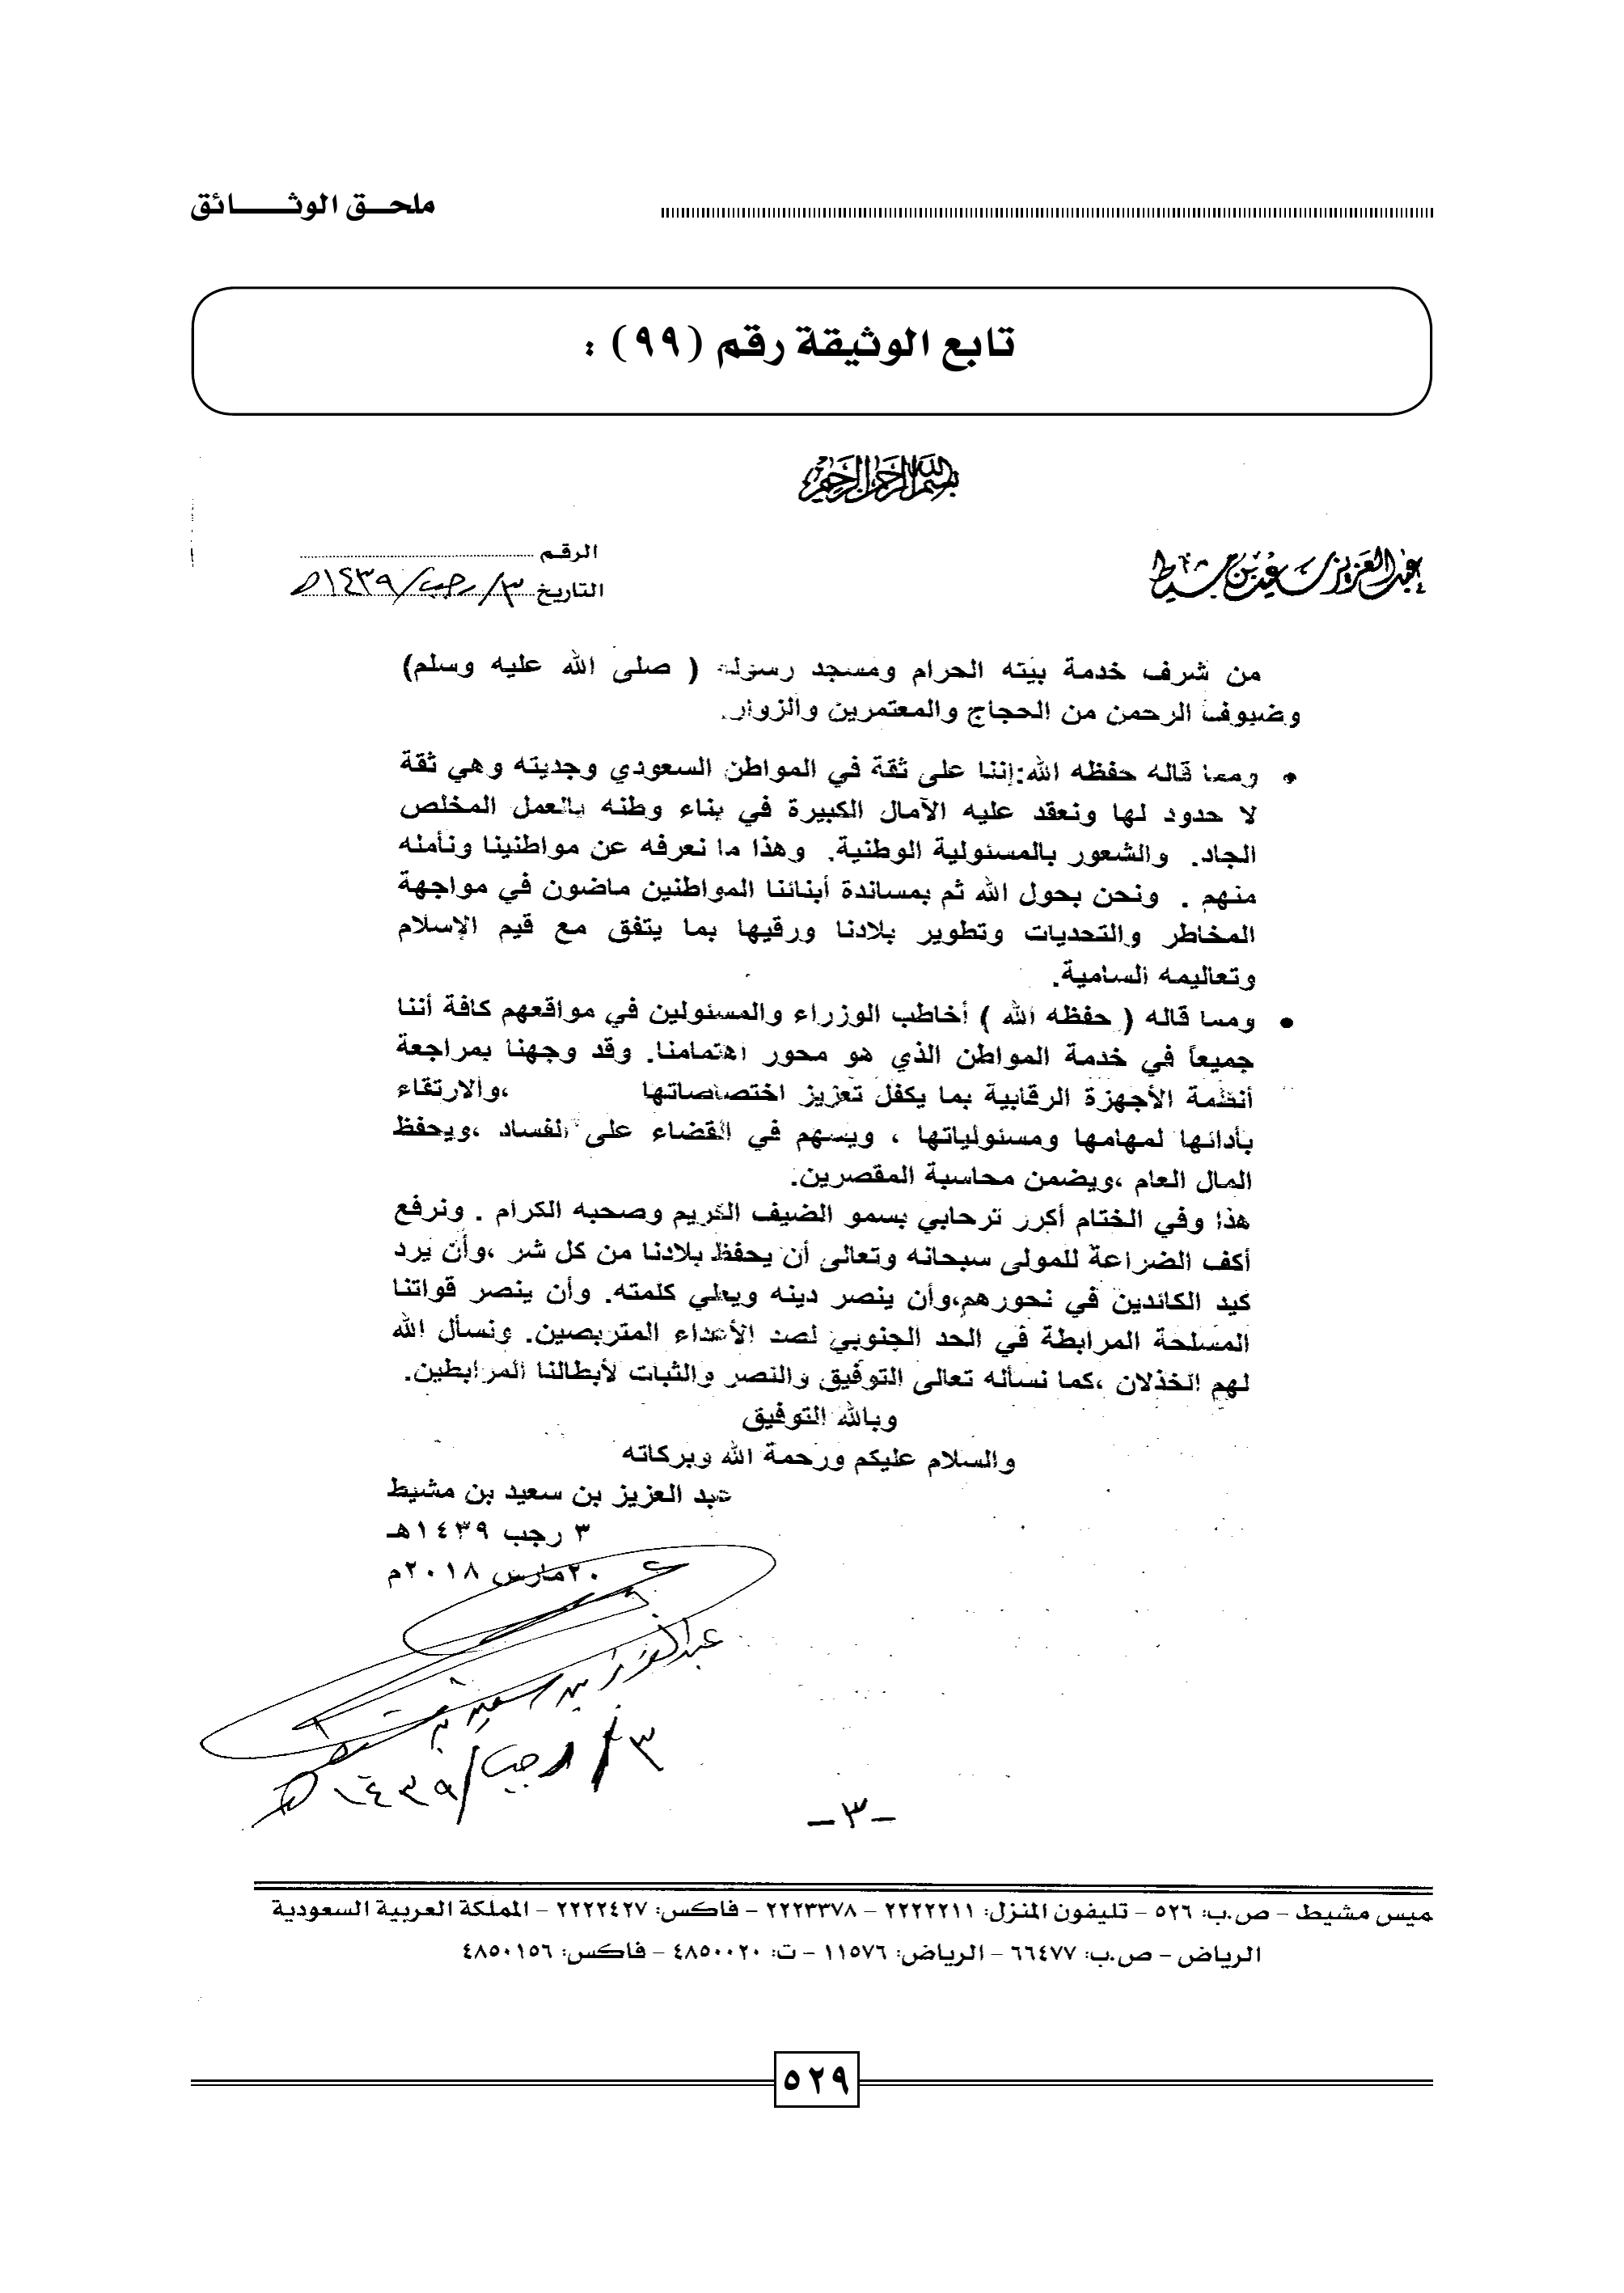 ملحق الوثائق
تابع الوثيقة رقم (٩٩) :
بسم الله الرحمن الرحيم
عبد العزيز سعيد بن مشيط
الرقم
التاريخ ٣/رجب/١٤٣٩هـ
من شرف خدمة بيته الحرام ومسجد رسوله ( صلى الله عليه وسلم)
وضيوف الرحمن من الحجاج والمعتمرين والزوار.
• ومما قاله حفظه الله:إننا على ثقة في المواطن السعودي وجديته وهي ثقة
لا حدود لها ونعقد عليه الآمال الكبيرة في بناء وطنه بالعمل المخلص
الجاد. والشعور بالمسئولية الوطنية. وهذا ما نعرفه عن مواطنينا ونأمله
منهم . ونحن بحول الله ثم بمساندة أبنائنا المواطنين ماضون في مواجهة
المخاطر والتحديات وتطوير بلادنا ورقيها بما يتفق مع قيم الإسلام
وتعاليمه السامية.
• ومما قاله ( حفظه الله ) أخاطب الوزراء والمسئولين في مواقعهم كافة أننا
جميعاً في خدمة المواطن الذي هو محور اهتمامنا. وقد وجهنا بمراجعة
أنظمة الأجهزة الرقابية بما يكفل تعزيز اختصاصاتها ،والارتقاء
بأدائها لمهامها ومسئولياتها ، ويسهم في القضاء على الفساد ،ويحفظ
المال العام ،ويضمن محاسبة المقصرين.
هذا وفي الختام أكرر ترحابي بسمو الضيف الكريم وصحبه الكرام . ونرفع
أكف الضراعة للمولى سبحانه وتعالى أن يحفظ بلادنا من كل شر ،وأن يرد
كيد الكائدين في نحورهم،وأن ينصر دينه ويعلي كلمته. وأن ينصر قواتنا
المسلحة المرابطة في الحد الجنوبي لصد الأعداء المتربصين. ونسأل الله
لهم الخذلان ،كما نسأله تعالى التوفيق والنصر والثبات لأبطالنا المرابطين.
وبالله التوفيق
والسلام عليكم ورحمة الله وبركاته
عبد العزيز بن سعيد بن مشيط
٣ رجب ١٤٣٩هـ
٢٠مارس ٢٠١٨م
عبدالعزيز بن سعيد بن مشيط
٣/رجب/١٤٣٩هـ
-٣-
ميس مشيط – ص.ب: ٥٢٦ – تليفون المنزل: ٢٢٢٢٢١١ – ٢٢٢٣٣٧٨ – فاكس: ٢٢٢٢٤٢٧ – المملكة العربية السعودية
الرياض – ص.ب: ٦٦٤٧٧ – الرياض: ١١٥٧٦ – ت: ٤٨٥٠٠٢٠ – فاكس: ٤٨٥٠١٥٦
٥٢٩